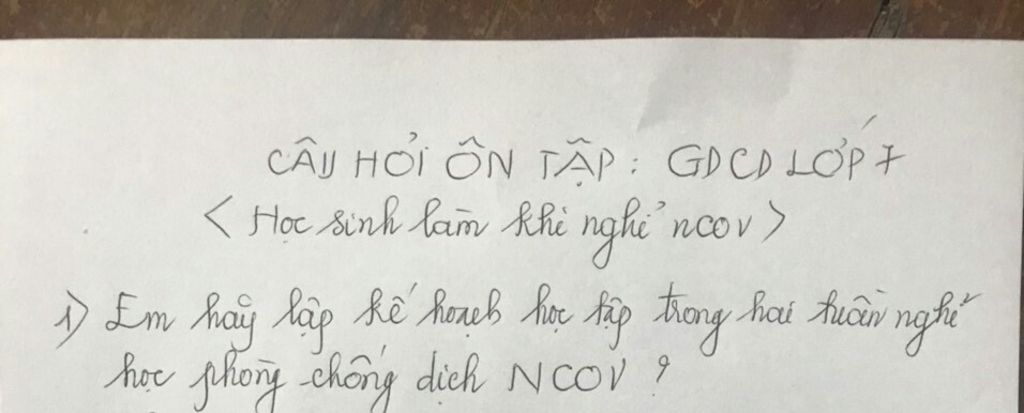 CÂU HỎI ÔN TẬP: GDCD LỚP 7
< Học sinh làm khi nghỉ nCOV >
1) Em hãy lập kế hoạch học tập trong hai tuần nghỉ
học phòng chống dịch NCOV ?